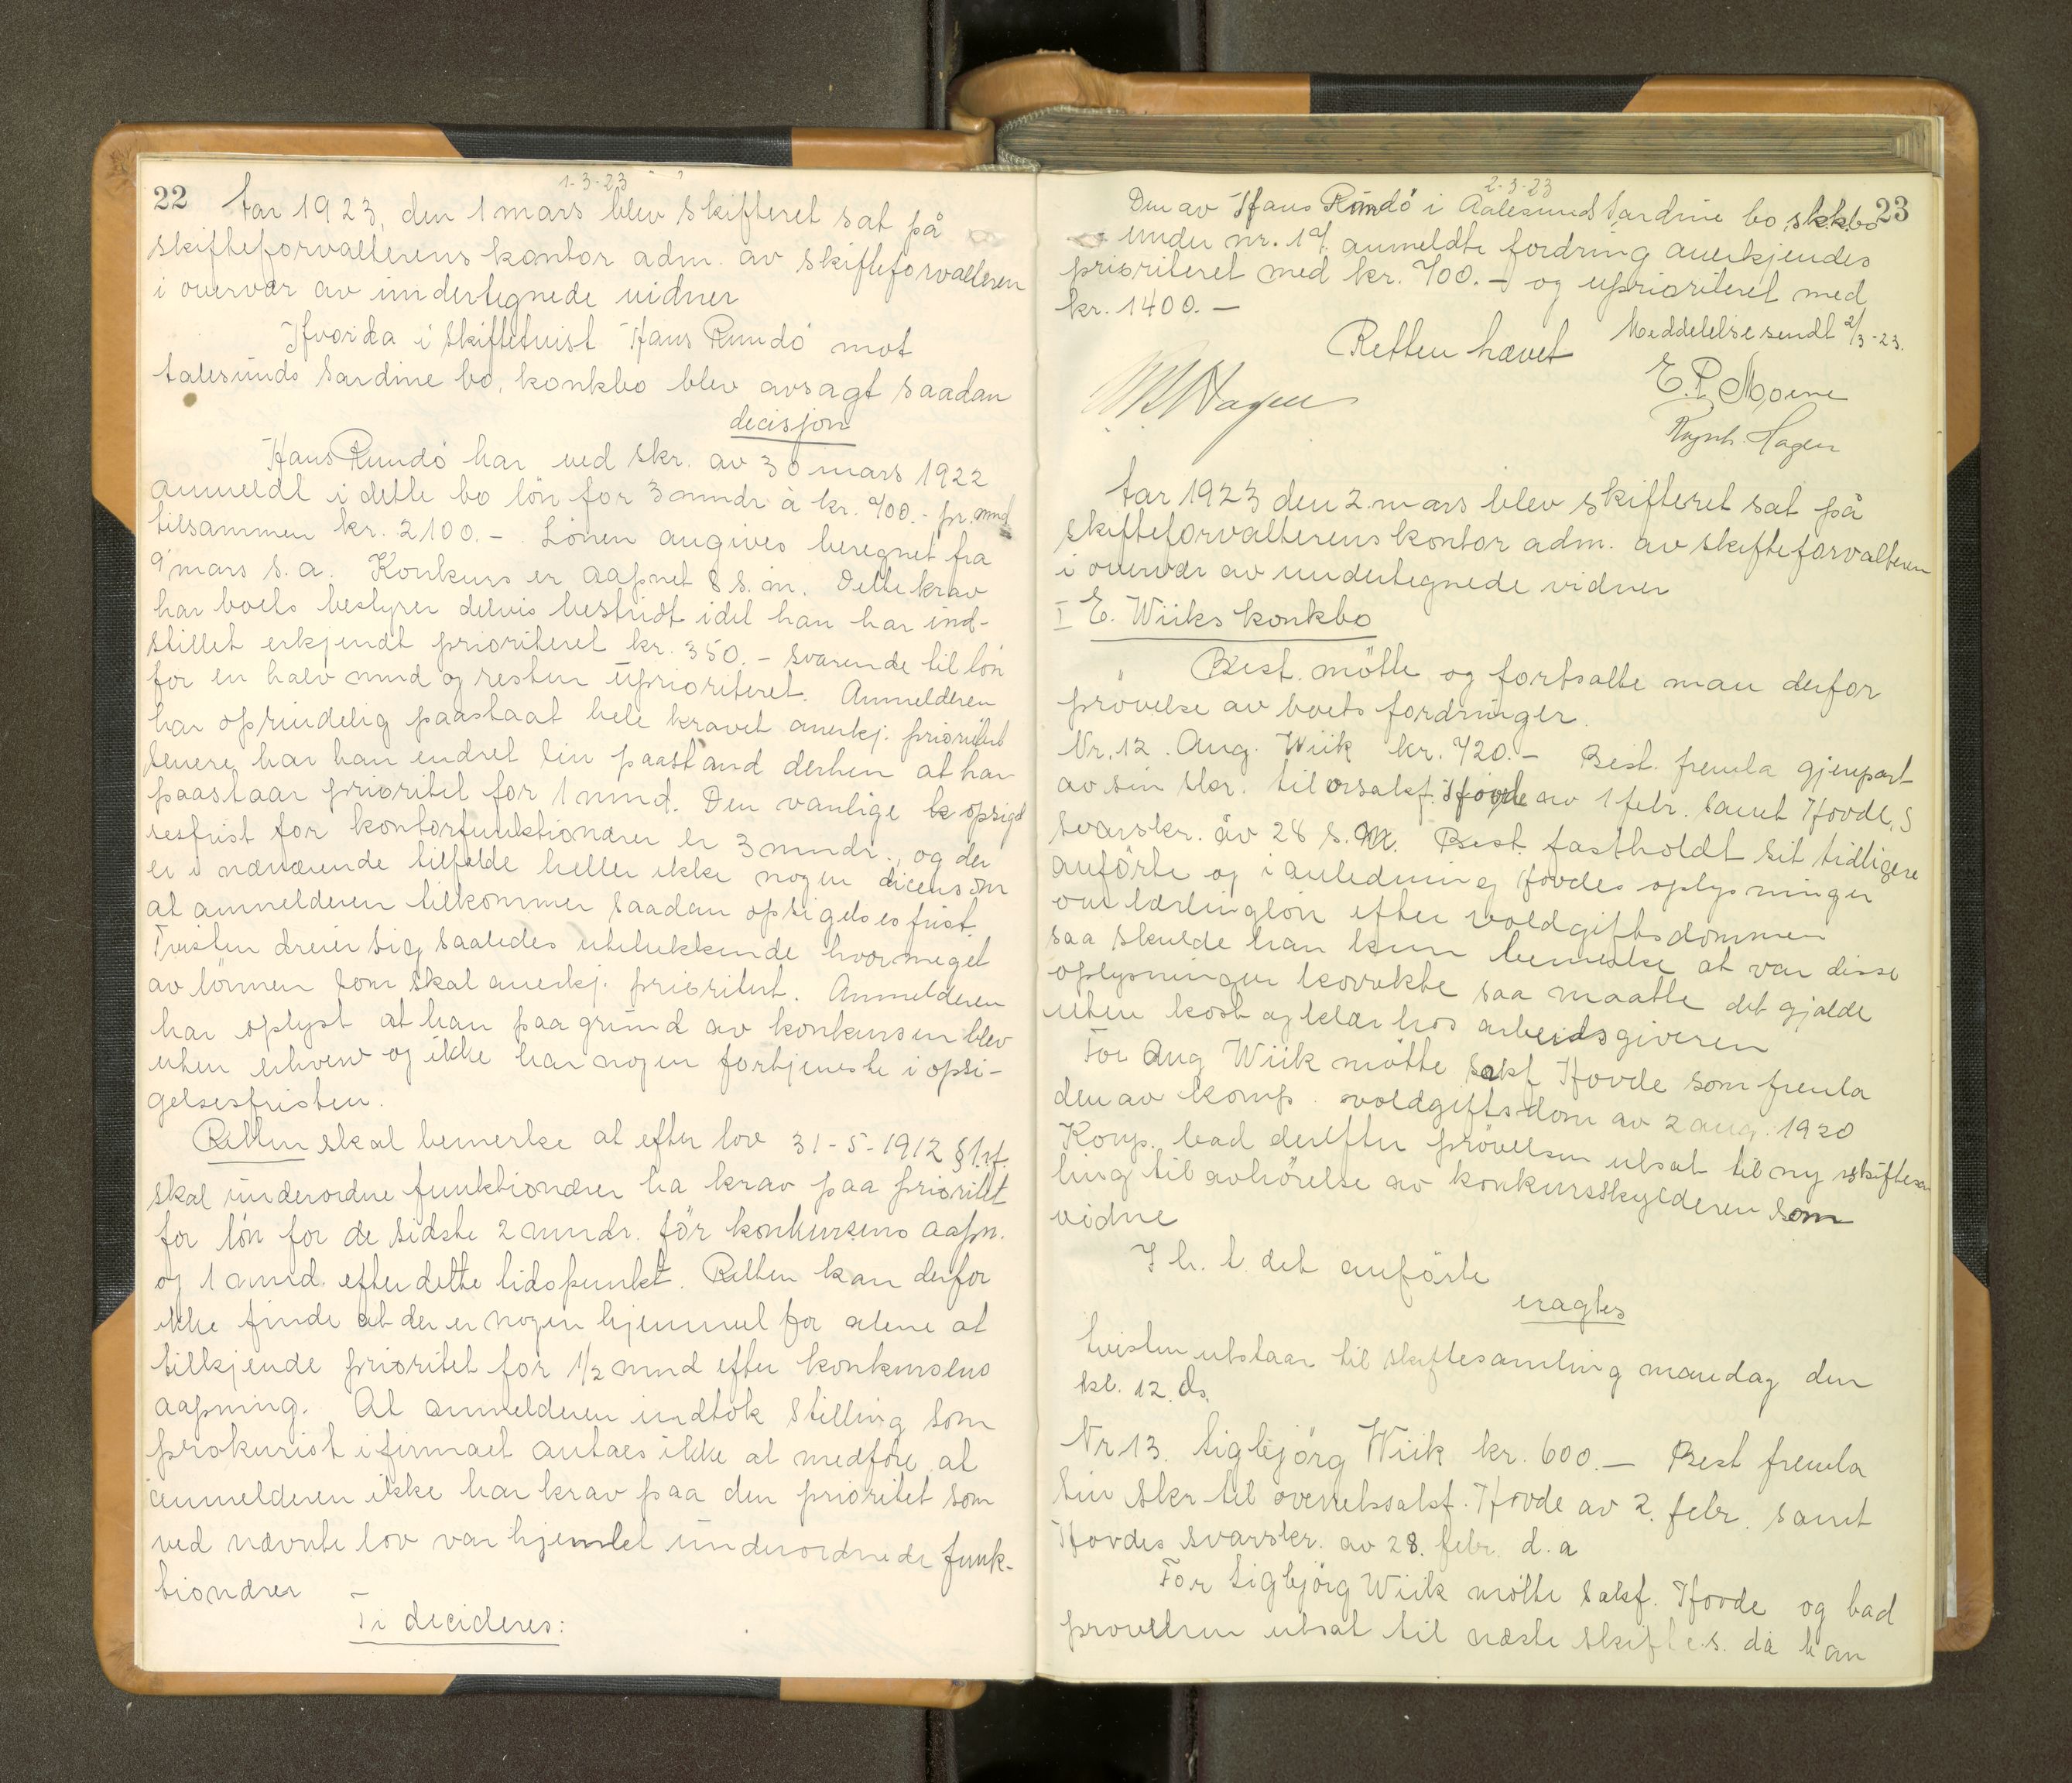 1-3-23
22
Aar 1923, den 1 mars blev skifteret sat på
skifteforvalterens kontor adm. av skifteforvalteren
i overvær av undertegnede vidner
Hvorda i skiftetvist Hans Rundö mot
Aalesunds Sardine bo, konkbo blev avsagt saadan
decisjon
Hans Rundö har ved skr. av 30 mars 1922
anmeldt i dette bo lön for 3 mndr à kr. 700.- pr. mnd
tilsammen kr. 2100.- Lönen angives beregnet fra
9 mars s.a. Konkurs er aapnet 8 s.m. Dette krav
har boets bestyrer delvis bestridt idet han har ind-
stillet erkjendt prioriteret kr. 350.- svarende til lön
for en halv mnd og resten uprioriteret. Anmelderen
har oprindelig paastaat hele kravet anerkj. prioritert
senere har han endret sin paastand derhen at han
paastaar prioritet for 1 mnd. Den vanlige opsigel
sesfrist for kontorfunktionærer er 3 mndr., og der
er i nærværende tilfælde heller ikke nogen dicens om
at anmelderen tilkommer saadan opsigelsesfrist.
Tvisten dreier sig saaledes utelukkende hvormeget
av lönnen som skal anerkj. prioritert. Anmelderen
har oplyst at han paa grund av konkursen blev
uten erhverv og ikke har nogen fortjeneste i opsi-
gelsesfristen.
Retten skal bemerke at efter lov 31-5-1912 § 1. rf.
skal underordne funktionærer ha krav paa prioritet
for lön for de sidste 2 mndr. för konkursens aapn.
og 1 mnd. efter dette tidspunkt. Retten kan derfor
ikke finde at der er nogen hjemmel for alene at
tilkjende prioritet for 1/2 mnd efter konkursens
aapning. At anmelderen indtok stilling som
prokurist i firmaet antaes ikke at medföre at
anmelderen ikke har krav paa den prioritet som
ved nævnte lov var hjemlet underordnede funk-
tionærer
Ti decideres:
2-3-23
23
Den av Hans Rundö i Aalesunds Sardine bo, skkbo
under nr. 19. anmeldte fordring anerkjendes
prioriteret med kr. 700.- og uprioriteret med
kr. 1400.-
Retten hævet Meddelelse sendt 2/3-23.
Hagen E. P. Moene
Hagen
Aar 1923 den 2. mars blev skifteret sat på
skifteforvalterens kontor adm. av skifteforvalteren
i overvær av undertegnede vidner
I E. Wiiks konkbo
Best. mötte og fortsatte man derfor
prövelse av boets fordringer.
Nr. 12. Aug. Wiik kr. 720.- Best. fremla gjenpart
av sin skr. til orsakf. Hovde av 1 febr. samt Hovdes
svarskr. av 28 s.m. Best. fastholdt sit tidligere
anförte og i anledning Hovdes oplysninger
om lærlinglön efter voldgiftsdommen
saa skulde han kun bemerke at var disse
oplysninger korrekte saa maatte det gjælde
uten kost og klær hos arbeidsgiveren
For Aug Wiik mötte sakf Hovde som fremla
den av komp. voldgiftsdom av 2 aug. 1920
Komp. bad derefter prövelsen utsat til ny skiftesam
ling til avhörelse av konkursskylderen som
vidne
I h. t. det anförte
eragtes
tvisten utstaar til skiftesamling mandag den
kl. 12. ds.
Nr 13. Sigbjörg Wiik kr. 600.- Best fremla
sin skr til overretssakf. Hovde av 2. febr. samt
Hovdes svarskr. av 28. febr. d.a
For Sigbjörg Wiik mötte sakf. Hovde og bad
prövelsen utsat til næste skiftes. da han